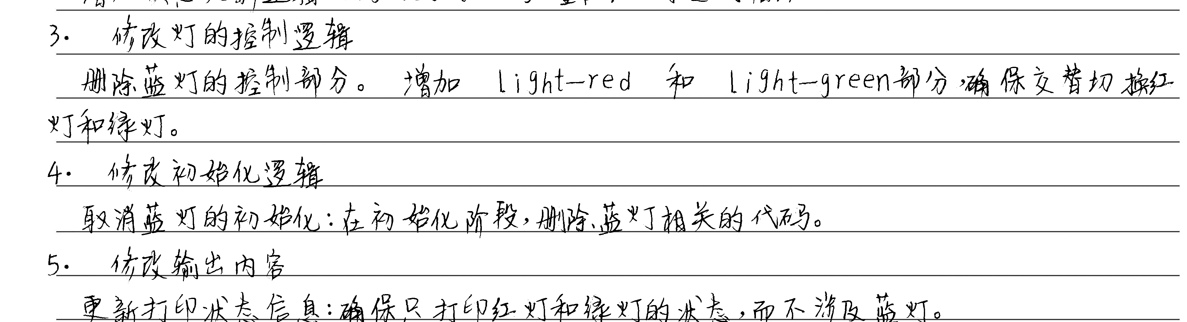 3. 修改灯的控制逻辑
删除蓝灯的控制部分。 增加 light-red 和 light-green部分,确保交替切换红
灯和绿灯。
4. 修改初始化逻辑
取消蓝灯的初始化:在初始化阶段,删除蓝灯相关的代码。
5. 修改输出内容
更新打印状态信息:确保只打印红灯和绿灯的状态,而不涉及蓝灯。